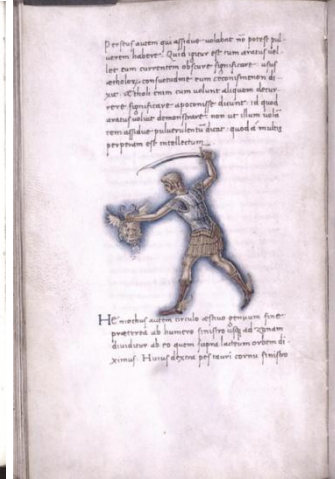 Perseus autem qui assidue volabat nō potest pul
verem habere. Quid igitur est cum aratus vel
let eum currentem obscure significare. usus
ætholoꝝ consuetudine eum cecon[...] di
xit. ætholi enim cum volunt aliquem decur
rere significare apoconisse dicunt. id quod
aratus voluit demonstrare. non ut illum vela
tem assidue pulverulentū dicat. quod a multis
perperam est intellectum
Heniochus autem circulo æstivo genuum fine
præterea ab humero sinistro usq ad zonam
dividitur ab eo quem supra lacteum orbem di
ximus. Huius dextra pes tauri cornu sinistro